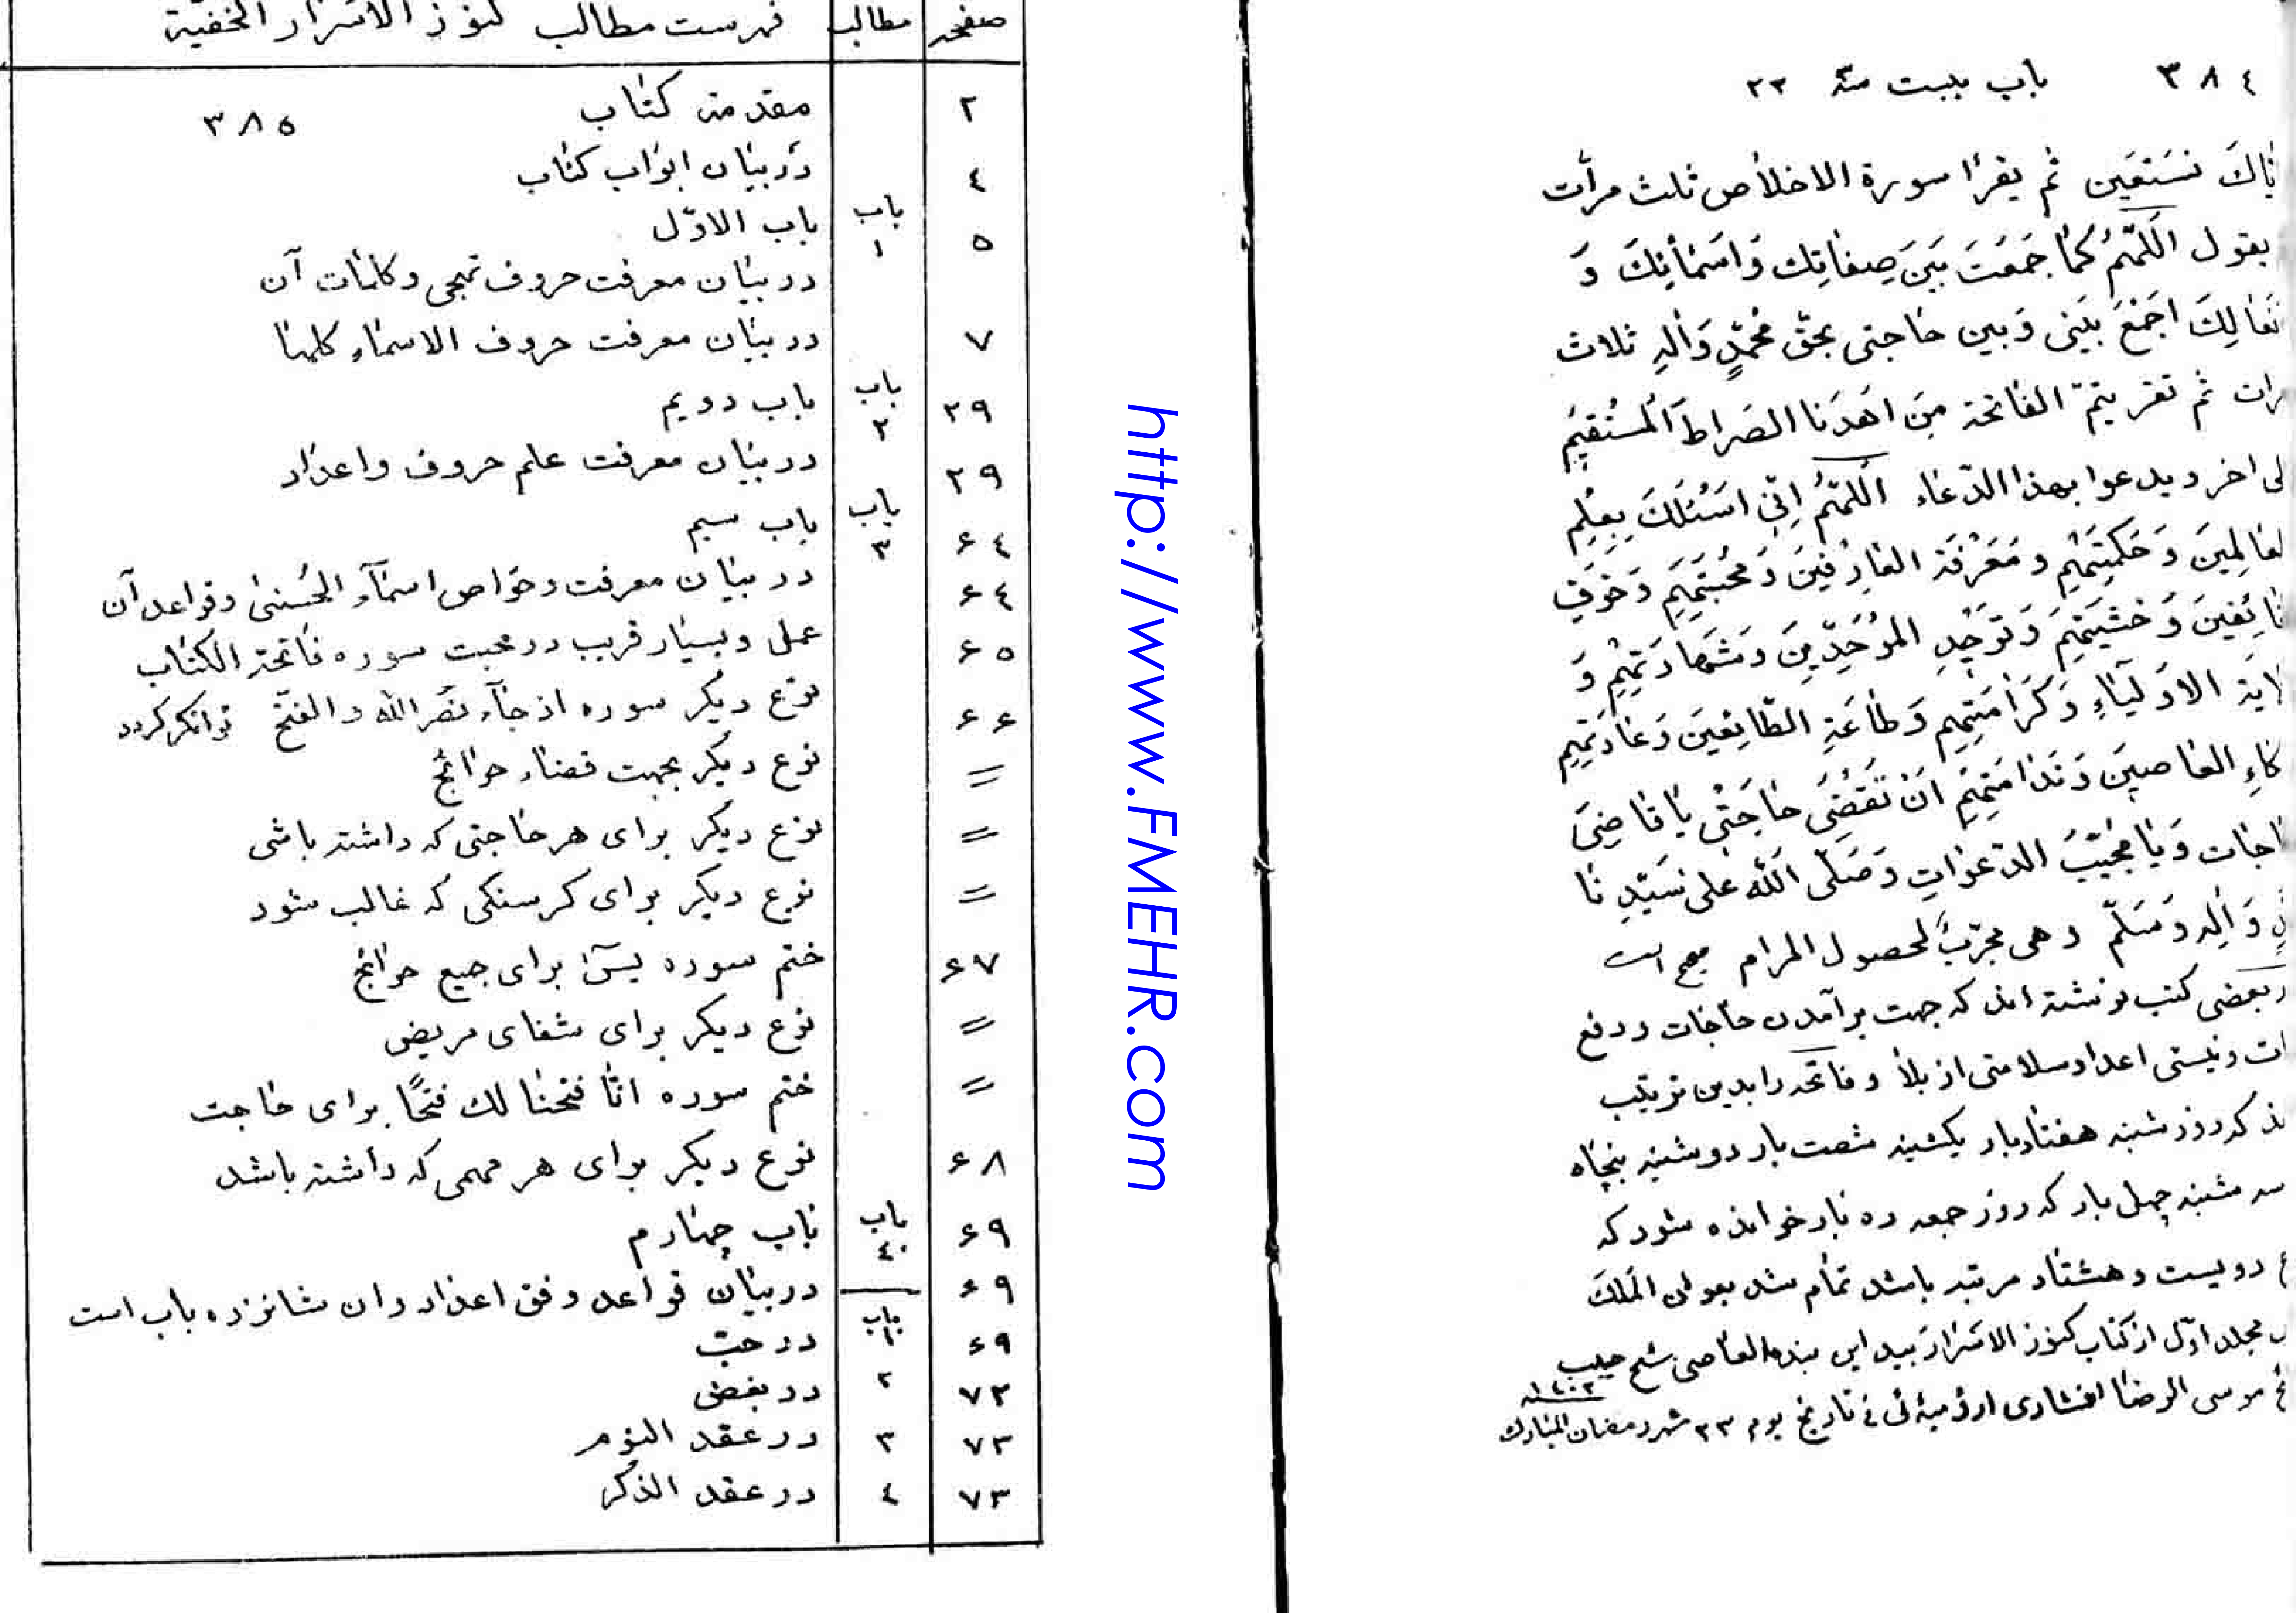 ٣٨٤ باب بیست ٢٣
نَسْتَعین ثم یقرا سورة الاخلاص ثلث مرات
یقول اَللّهُمَّ کَما جَمَعْتَ بَیْنَ صِفاتِكَ وَاَسْمائِكَ وَ
اجْمَعْ بَیْنی وَبین حاجتی بحَقّ مُحَمَّدٍ وَالِهِ ثلاث
ثم تقر یتم الفاتحة مِن اهْدِنَا الصّراطَ المُسْتَقیمَ
اخر ویدعوا بهذا الدّعاء اَللّهُمَّ اِنّی اَسْئَلُكَ بِعِلْمِ
وَحِکْمَتِهِمْ وَمَعْرِفَة العارِفینَ وَمُحَبَّتِهِمْ وَخَوْفِ
وَخَشْیَتِهِمْ وَتَوْحیدِ المُوَحِّدینَ وَشَهادَتِهِمْ وَ
الاَوْلیاءِ وَکَرامَتِهِم وَطاعَةِ الطّائِعینَ وَعِبادَتِهِم
العاصینَ وَنَدامَتِهِمْ اَنْ تَقْضِیَ حاجَتی یا قاضِیَ
وَیا مُجیبَ الدّعَواتِ وَصَلّی اَللّه عَلی سَیّدِنا
وَالِهِ وَسَلّم وهی مجرّب لحصول المرام صحیح است
بعضی کتب نوشته اند که جهت برآمدن حاجات ودفع
ونیستی اعداد سلامتی از بلا وفاتحه را بدین ترتیب
که روز شنبه هفتاد بار یکشنبه شصت بار دوشنبه پنجاه
سه شنبه چهل بار که روز جمعه ده بار خوانده شود که
دویست وهشتاد مرتبه باشد تمام شد بعون الملك
مجلد اوّل از کتاب کنوز الاسرار بید این بنده العاصی شیخ حبیب
موسی الرضا افشاری ارومیه ئی فی تاریخ یوم ٢٣ شهر رمضان المبارك
صفحه مطالب فهرست مطالب کنوز الاسرار الخفیّة
٢ مقدمه کتاب ٣٨٥
٤ در بیان ابواب کتاب
٥ باب ١ باب الاوّل
در بیان معرفت حروف تهجی وکلمات آن
٧ در بیان معرفت حروف الاسماء کلها
٢٩ باب ٢ باب دویم
٢٩ در بیان معرفت علم حروف واعداد
۶٤ باب ٣ باب سیم
۶٤ در بیان معرفت وخواص اسماء الحُسنی وقواعد آن
۶٥ عمل وبسیار قریب در محبت سوره فاتحة الکتاب
۶۶ نوع دیکر سوره اذ جاء نصر الله والفتح توانکر کردد
= نوع دیکر بجهت قضاء حوائج
= نوع دیکر برای هر حاجتی که داشته باشی
= نوع دیکر برای کرسنکی که غالب شود
۶٧ ختم سوره یسَ برای جمیع حوائج
= نوع دیکر برای شفای مریض
= ختم سوره انّا فتحنا لك فتحًا برای حاجت
۶٨ نوع دیکر برای هر مهمی که داشته باشد
۶٩ باب ٤ باب چهارم
۶٩ در بیان قواعد وفق اعداد وان شانزده باب است
۶٩ باب ١ در حبّ
٧٢ ٢ در بغض
٧٣ ٣ در عقد النوم
٧٣ ٤ در عقد الذکر
http://www.FMEHR.com